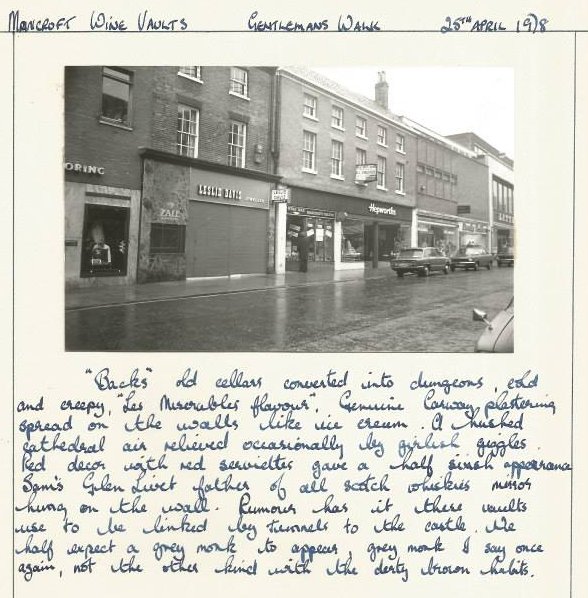 MANCROFT WINE VAULTS GENTLEMANS WALK 25TH APRIL 1978
ORING
LESLIE DAVIS
Hepworths
"Backs" old cellars converted into dungeons, cold
and creepy, "Les Miserables flavour". Genuine Conway plastering
spread on the walls like ice cream. A hushed
cathedral air relieved occasionally by girlish giggles.
Red decor with red serviettes gave a half swish appearance
Sam's Glen Livet father of all scotch whiskies mirror
hung on the wall. Rumour has it these vaults
use to be linked by tunnels to the castle. We
half expect a grey monk to appear, grey monk I say once
again, not the other kind with the dirty brown habits.